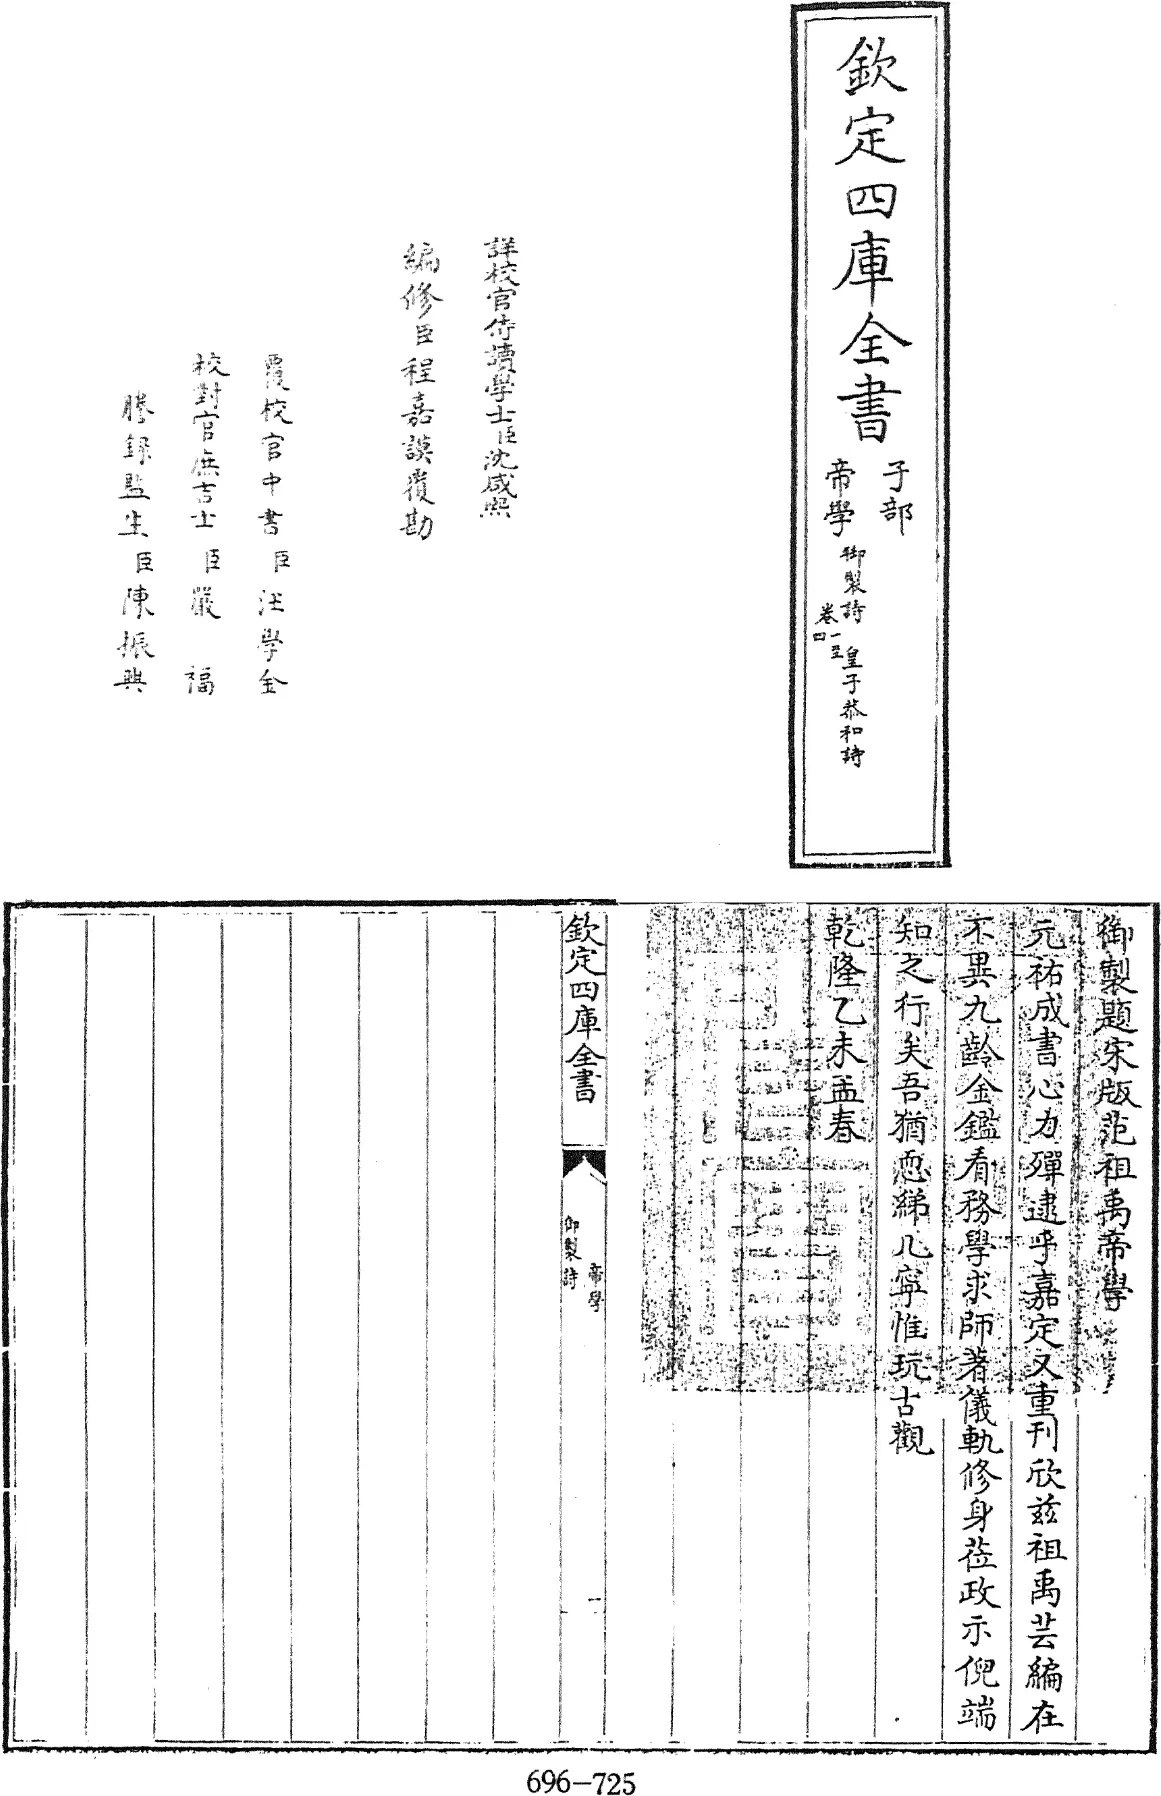 欽定四庫全書
子部
帝學
御製詩 皇子恭和詩
卷一至四
詳校官侍讀學士臣沈咸熙
編修臣程嘉謨覆勘
覆校官中書臣汪學金
校對官庶吉士臣嚴福
謄錄監生臣陳振興
御製題宋版范祖禹帝學
元祐成書心力殫逮乎嘉定又重刊欣茲祖禹芸編在
不異九齡金鑑看務學求師著儀軌修身莅政示倪端
知之行矣吾猶恧綈几寧惟玩古觀
乾隆乙未孟春
欽定四庫全書
帝學
御製詩
一
696-725